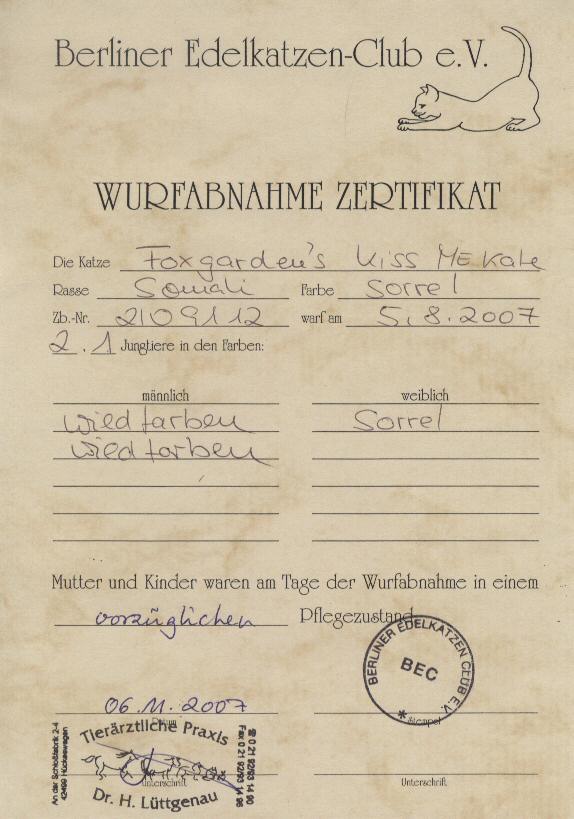 Berliner Edelkatzen-Club e.V.
WURFABNAHME ZERTIFIKAT
Die Katze Foxgarden's Kiss Me Kate
Rasse Somali Farbe Sorrel
Zb.-Nr. 2109112 warf am 5.8.2007
2.1 Jungtiere in den Farben:
männlich weiblich
wildfarben Sorrel
wildfarben
Mutter und Kinder waren am Tage der Wurfabnahme in einem
vorzüglichen Pflegezustand
BERLINER EDELKATZEN CLUB E.V.
BEC
06.11.2007
Datum Stempel
Tierärztliche Praxis
Dr. H. Lüttgenau
An der Schloßfabrik 2-4
42499 Hückeswagen
☎ 0 21 92/93 14 90
Fax 0 21 92/93 14 98
Unterschrift Unterschrift